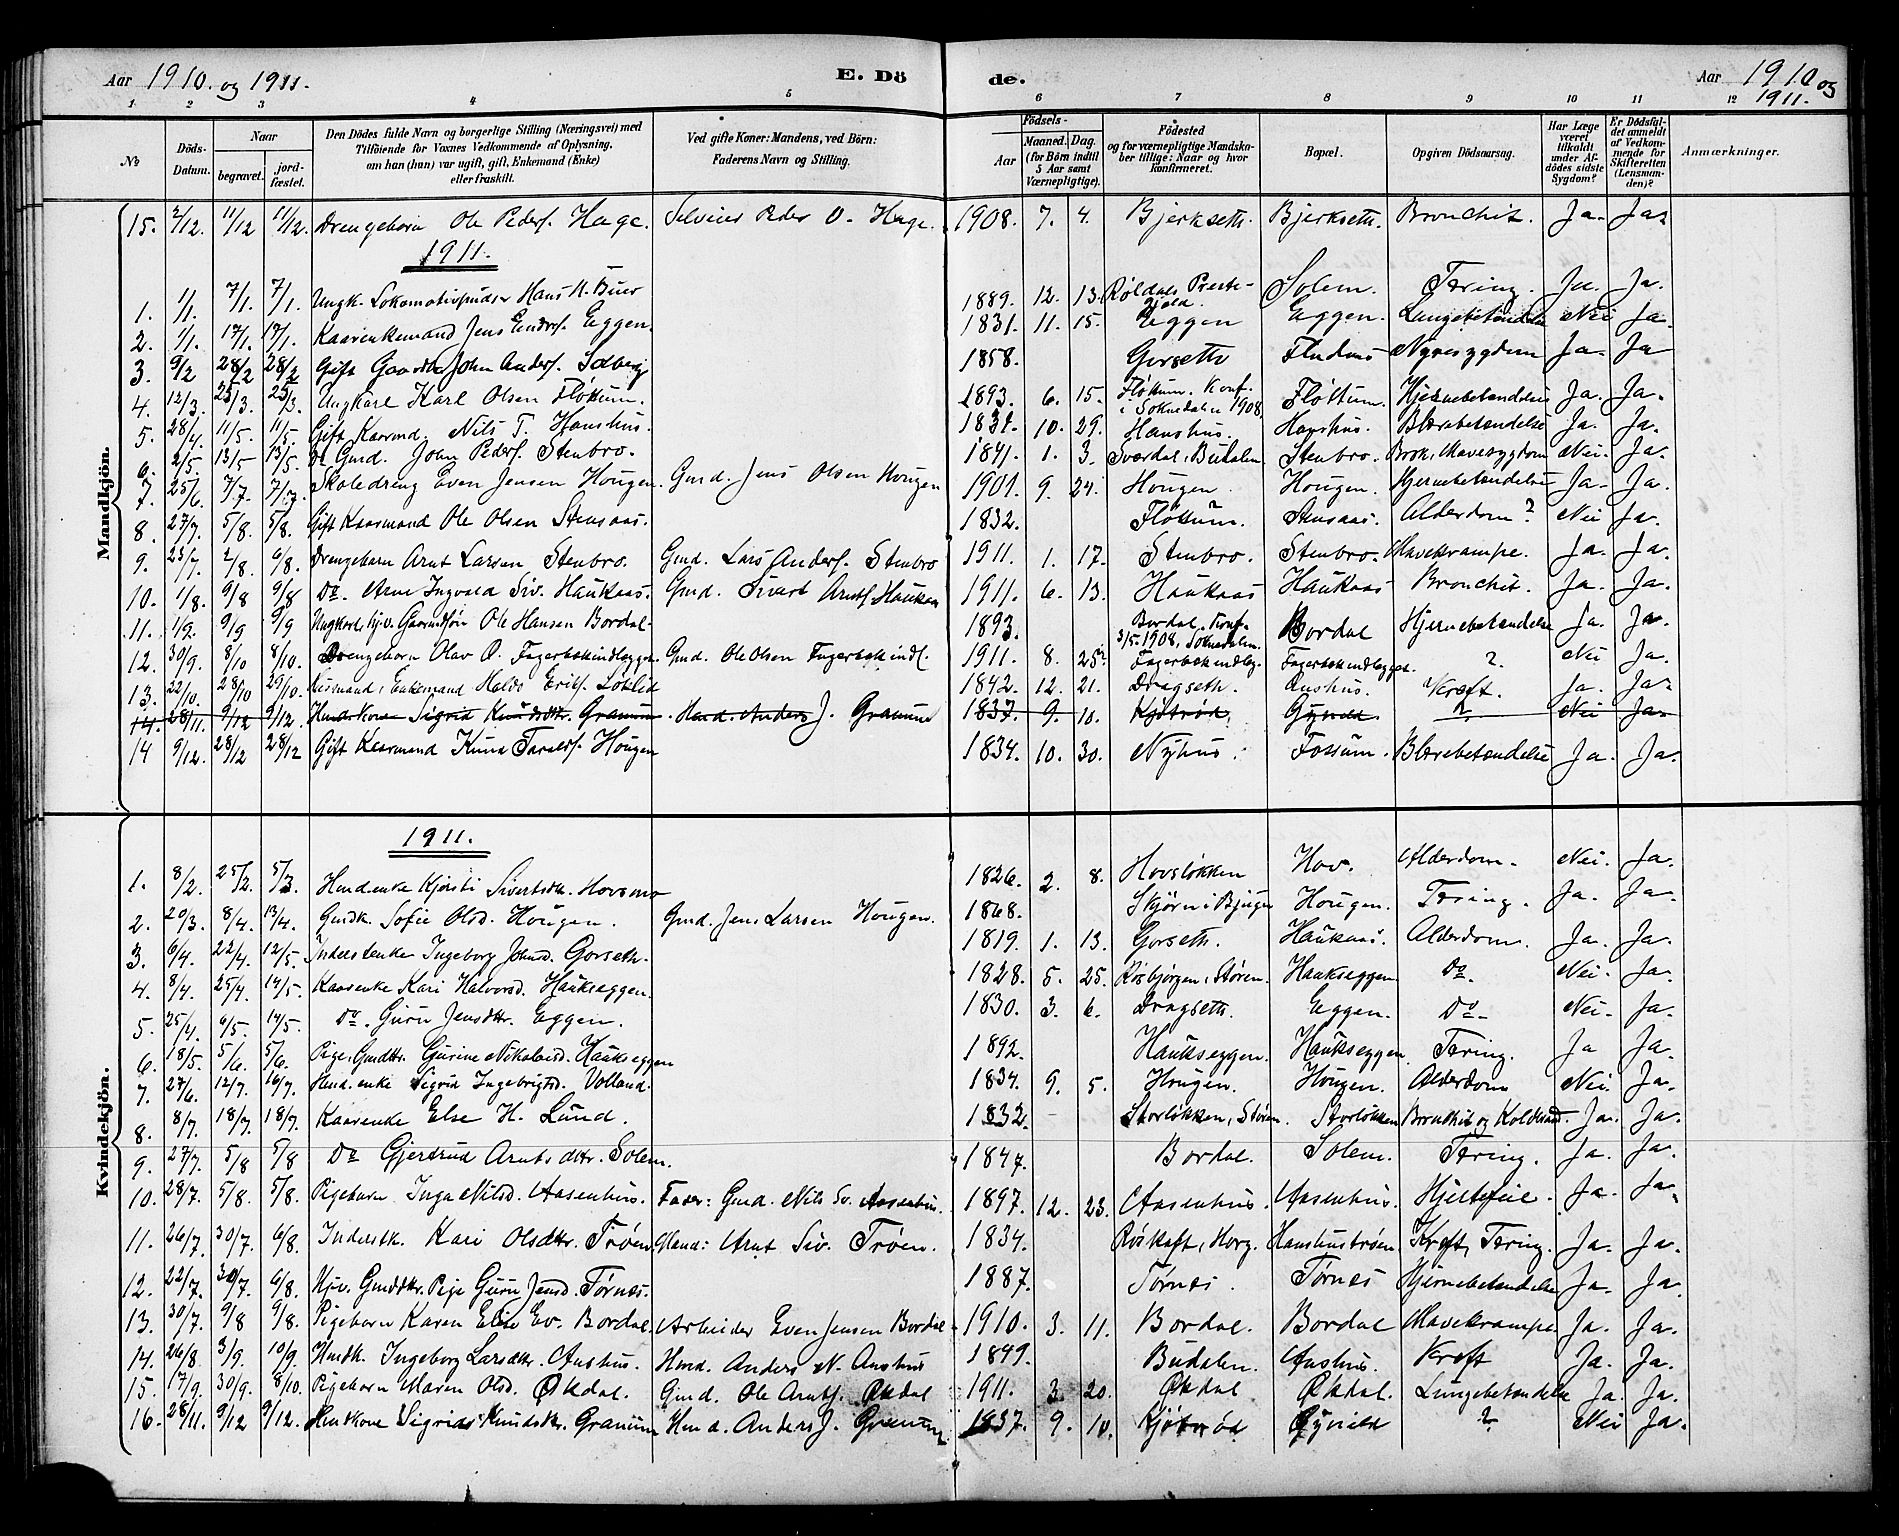 Aar 1910. og 1911. E. Dö de. Aar 1910 og 1911.
1 2 3 4 5 6 7 8 9 10 11 12
No Döds-Datum. Naar begravet. jordfæstet. Den Dödes fulde Navn og borgerlige Stilling (Næringsvei) med Tilföiende for Voxnes Vedkommende af Oplysning, om han (hun) var ugift, gift, Enkemand (Enke) eller fraskilt. Ved gifte Koner: Mandens, ved Börn: Faderens Navn og Stilling. Födsels- Aar Maaned. Dag. (for Börn indtil 5 Aar samt Værnepligtige). Födested og for værnepligtige Mandskaber tillige: Naar og hvor konfirmeret. Bopæl. Opgiven Dödsaarsag. Har Læge været tilkaldt under Afdödes sidste Sygdom? Er Dödsfaldet anmeldt af Vedkommende for Skifteretten (Lensmanden)? Anmærkninger.
Mandkjön.
15. 2/12. 11/12 11/12. Drengebarn Ole Peders. Hage. Selveier Peder O. Hage. 1908. 7. 4. Bjerkseth. Bjerkseth. Bronchit. Ja. Ja.
1911.
1. 1/1. 7/1. 7/1. Ungk. Lokomotivpudser Hans K. Buer 1889. 12. 13. Røldals Prestegjeld. Solem. Tæring. Ja. Ja.
2. 1/1. 17/1. 17/1. Kaarenkemand Jens Endres. Eggen. 1831. 11. 15. Eggen Eggen. Lungebetændelse Nei Ja.
3. 9/2 28/2 28/2 Gift John Anders. Solberg 1858. Gorseth Nyresygdom Ja. Ja
4. 12/3. 25/3. 25/3. Ungkarl Karl Olsen Fløttum. 1893. 6. 15. Fløttum. Konf. i Soknedalen 1908 Fløttum. Hjernebetændelse Ja. Ja.
5. 28/4. 11/5. 11/5. Gift Kaarmd. Nils T. Hanshus. 1831. 10. 29. Hanshus. Hanshus. Blærebetændelse Ja. Ja.
6. 2/5. 13/5 13/5. Do Gmd. John Peders. Stenbro. 1841. 1. 3. Sværdal, Budalen Stenbro. Brok, Mavesygdom Nei. Ja.
7. 25/6. 7/7 7/7. Skoledreng Even Jensen Hougen. Gmd. Jens Olsen Hougen 1901. 9. 24. Hougen. Hougen. Hjernebetændelse Ja. Ja.
8. 27/7. 5/8. 5/8. Gift Kaarmand Ole Olsen Stensaas. 1832. Fløttum. Stensaas. Alderdom? Nei Ja.
9. 23/7. 2/8. 6/8. Drengebarn Arnt Larsen Stenbro. Gmd. Lars Anders. Stenbro 1911. 1. 17. Stenbro. Stenbro. Mavekrampe. Ja. Ja.
10. 1/8. 9/8 9/8 Do. Arne Ingvald Siv. Haukaas. Gmd. Sivert Arnts. Haukaas 1911. 6. 13. Haukaas Haukaas Bronchit. Ja. Ja.
11. 1/9. 9/9 9/9 Ungkarl, hjv. Gaarmdsøn Ole Hansen Bordal. 1893. Bordal, Konf. 3/5. 1908, Soknedalen. Bordal Hjernebetændelse Ja. Ja.
12. 30/9. 8/10 8/10. Drengebarn Olav O. Fagerbekindlegget. Gmd. Ole Olsen Fagerbekindl. 1911. 8. 25. Fagerbekindleg. Fagerbekindlegget. ? Nei Ja.
13. 22/10. 28/10 29/10. Enkemand Halds Eriks. Løklid 1842. 12. 21. Dragseth. Aushus. Kræft. Ja. Ja.
14. 28/11. 9/12 9/12. Husmkone Sigrid Knudsdtr. Granum. Husmd. Anders J. Granum 1837. 9. 10. Kjøtrød. Gynild. ? Nei Ja.
14 9/12. 28/12 28/12 Gift Kaarmand Knud Taralds. Hougen 1834. 10. 30. Nyhus. Fossum. Blærebetændelse Ja. Ja.
Kvindekjön.
1911.
1. 8/2. 25/2. 5/3. Husmdenke Kjersti Sivertsdtr. Hovsmo 1826. 2. 8. Hovsløkken Hov. Alderdom. Nei. Ja.
2. 20/3. 8/4. 13/4. Gmdk. Sofie Olsd. Hougen. Gmd. Jens Larsen Hougen. 1868. Skjørn i Bjugn Hougen. Tæring. Ja. Ja.
3. 6/4. 22/4. 12/5. Inderstenke Ingeborg Johnsd. Gorseth. 1819. 1. 13. Gorseth. Haukaas. Alderdom. Ja. Ja.
4. 8/4. 25/4. 14/5. Kaarenke Kari Halvorsd. Haukseggen. 1828. 5. 25. Rosbjørgen, Støren. Haukseggen Do. Nei. Ja.
5. 25/4. 6/5. 14/5. Do. Guru Jensdtr. Eggen. 1830. 3. 6. Dragseth. Eggen. Do. Nei. Ja.
6. 18/5. 5/6. 5/6. Pige, Gmdtr. Gurine Nikolaisd. Haukseggen 1892. Haukseggen. Haukseggen Tæring. Ja Ja.
7. 27/6. 12/7. 16/7. Husmd.enke Sigrid Ingebrigtsd. Volland. 1834. 9. 5. Hougen. Hougen. Alderdom Nei. Ja.
8. 8/7. 18/7. 18/7. Kaarenke Else H. Lund. 1832. Storløkken, Støren. Storløkken Bronkhit og Koldbrand. Ja. Ja.
9. 27/7. 5/8 5/8 Do Gjertrud Arntsdtr. Solem. 1847. Bordal. Solem. Tæring. Ja. Ja.
10. 28/7. 5/8. 5/8. Pigebarn Inga Nilsd. Aasenhus. Fader: Gmd. Nils Sv. Aasenhus. 1897. 12. 23. Aasenhus. Aasenhus. Hjertefeil. Ja. Ja.
11. 26/7. 30/7. 6/8. Inderstk. Kari Olsdtr. Trøen. Mand: Arnt Siv. Trøen. 1834. Røskaft, Horg. Hanshustrøen. Kræft, Tæring. Ja. Ja.
12. 22/7. 30/7 6/8. Hjv. Gmddtr. Pige Guru Jensd. Tørnes. 1887. Tørnes. Tørnes Hjernebetændelse Ja. Ja.
13. 30/7. 9/8 9/8. Pigebarn Karen Elise Ev. Bordal. Arbeider Even Jensen Bordal 1910. 3. 11. Bordal. Bordal Mavekrampe Ja. Ja.
14. 26/8 3/9. 10/9. Husmdk. Ingeborg Larsdtr. Aushus. Husmd. Anders N. Aushus 1849. Budalen. Aushus. Kræft Ja. Ja.
15. 17/9. 30/9. 8/10. Pigebarn Maren Olsd. Økdal. Gmd. Ole Arnts. Økdal 1911. 3. 20. Økdal Økdal. Lungebetændelse Ja. Ja.
16. 28/11. 9/12 9/12. Husmkone Sigrid Knudsdtr. Granum Husmd. Anders J. Granum 1837. 9. 10. Kjøtrød Gynild ? Nei Ja.